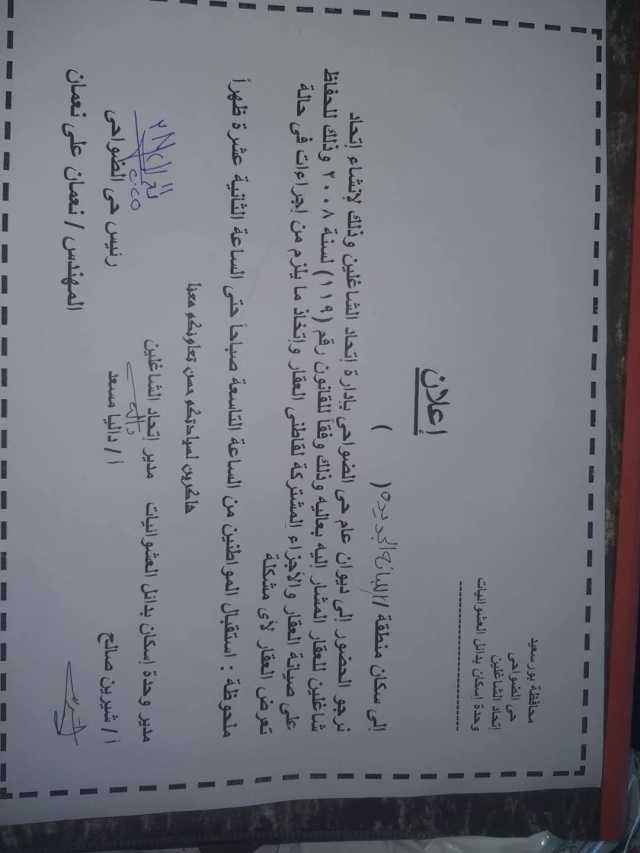 محافظة بورسعيد
حى الضواحى
إتحاد الشاغلين
وحدة إسكان بدائل العشوائيات
إعلان
إلى سكان منطقة / ( )
نرجو الحضور إلى ديوان عام حى الضواحى بإدارة إتحاد الشاغلين وذلك لإنشاء إتحاد
شاغلين للعقار المشار إليه بعاليه وذلك وفقاً للقانون رقم (١١٩) لسنة ٢٠٠٨ وذلك للحفاظ
على صيانة العقار والأجزاء المشتركة لقاطنى العقار وإتخاذ ما يلزم من إجراءات فى حالة
تعرض العقار لأى مشكلة
ملحوظة : إستقبال المواطنين من الساعة التاسعة صباحاً حتى الساعة الثانية عشرة ظهراً
شاكرين لسيادتكم حسن تعاونكم معنا
مدير وحدة إسكان بدائل العشوائيات مدير إتحاد الشاغلين
أ / شيرين صالح أ / داليا مسعد
رئيس حى الضواحى
المهندس / نعمان على نعمان